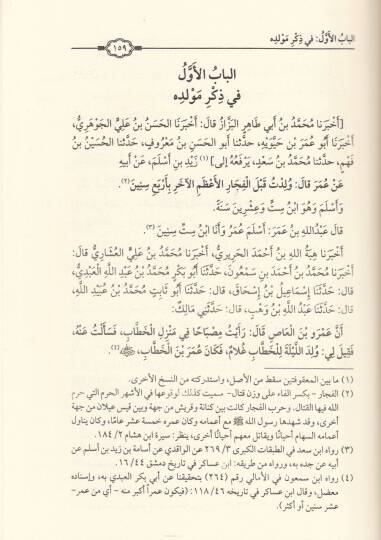 البابُ الأَوَّلُ: في ذِكْرِ مَوْلدِه
١٥٩
البابُ الأَوَّلُ
في ذِكْرِ مَوْلدِه
[أَخْبرَنا مُحَمَّدُ بنُ أَبي طَاهِرٍ البَزَّازُ قالَ: أَخْبَرَنَا الحَسَنُ بنُ عَليٍّ الجَوْهَرِيُّ،
أَخْبَرَنَا أَبُو عُمَرَ بْن حَيَّوَيْهِ، حدَّثنا أبو الحَسَنِ بنُ مَعْروفٍ، حَدَّثنا الحُسَيْنُ بنُ
فَهِمٍ، حدَّثنا مُحَمَّدُ بنُ سَعْدٍ، يَرْفَعُهُ إلى] (١) زَيْدِ بنِ أَسْلَمَ، عَنْ أَبِيهِ
عَنْ عُمَرَ قالَ: وُلِدْتُ قَبْلَ الفِجَارِ الأَعْظَمِ الآخَرِ بأَرْبَعِ سِنينَ(٢).
وَأَسْلَمَ وَهُوَ ابْنُ سِتٍّ وعِشْرِينَ سَنَة.
قالَ عَبْدُاللهِ بنُ عمَرَ: أَسْلَمَ عُمَرُ وَأَنَا ابنُ سِتِّ سنينَ (٣).
أَخْبرَنا هِبَةُ اللهِ بنُ أَحْمَدَ الحَرِيريُّ، أَخْبرنا مُحَمَّدُ بنُ عَليٍّ العُشَارِيُّ قالَ:
أَخْبرَنا مُحَمَّدُ بنُ أَحْمَدَ بنِ سَمْعُونَ، حَدَّثَنَا أَبُو بَكْرٍ مُحَمَّدُ بْنُ عَبْدِ اللَّهِ العَبْدِيُّ،
قال: حَدَّثَنَا إِسْمَاعِيلُ بْنُ إِسْحَاقَ، قال: حَدَّثَنَا أَبُو ثَابِتٍ مُحَمَّدُ بْنُ عُبَيْدِ اللَّهِ،
قال: حَدَّثَنَا عَبْدُ اللَّهِ بْنُ وَهْبٍ، قال: حَدَّثَنِي مَالِكٌ:
أَنَّ عَمْرو بْنَ الْعَاصِ قَالَ: رَأَيْتُ مِصْبَاحًا فِي مَنْزِلِ الْخَطَّابِ، فَسَأَلْتُ عَنْهُ،
فَقِيلَ لِي: وُلِدَ اللَّيْلَةَ لِلْخَطَّابِ غُلَامٌ، فَكَانَ عُمَرَ بْنَ الْخَطَّابِ، ﷺ(٤).
(١) ما بين المعقوفتين سقط من الأصل، واستدركته من النسخ الأخرى.
(٢) الفجار - بكسر الفاء على وزن قتال- سميت كذلك لوقوعها في الأشهر الحرم التي حرم
الله فيها القتال. وحرب الفجار كانت بين كنانة وقريش من جهة وبين قيس عيلان من جهة
أخرى، وقد شهدها رسول الله ﷺ مع أعمامه وكان عمره خمسة عشر عامًا، وكان يناول
أعمامه السهام أحيانًا ويقاتل معهم أحيانًا أخرى، ينظر: سيرة ابن هشام ٢/ ١٨٤.
(٣) رواه ابن سعد في الطبقات الكبرى ٣/ ٢٦٩ عن الواقدي عن أسامة بن زيد بن أسلم عن
أبيه عن جده به، ورواه من طريقه: ابن عساكر في تاريخ دمشق ٤٤/ ١٦.
(٤) رواه ابن سمعون في الأمالي رقم (٢٦٤) بتحقيقنا عن أبي بكر العبدي به، وإسناده
معضل، وقال ابن عساكر في تاريخه ٤٦/ ١١٨: (فيكون عمراً أكبر منه – أي من عمر–
عشر سنين أو أكثر).